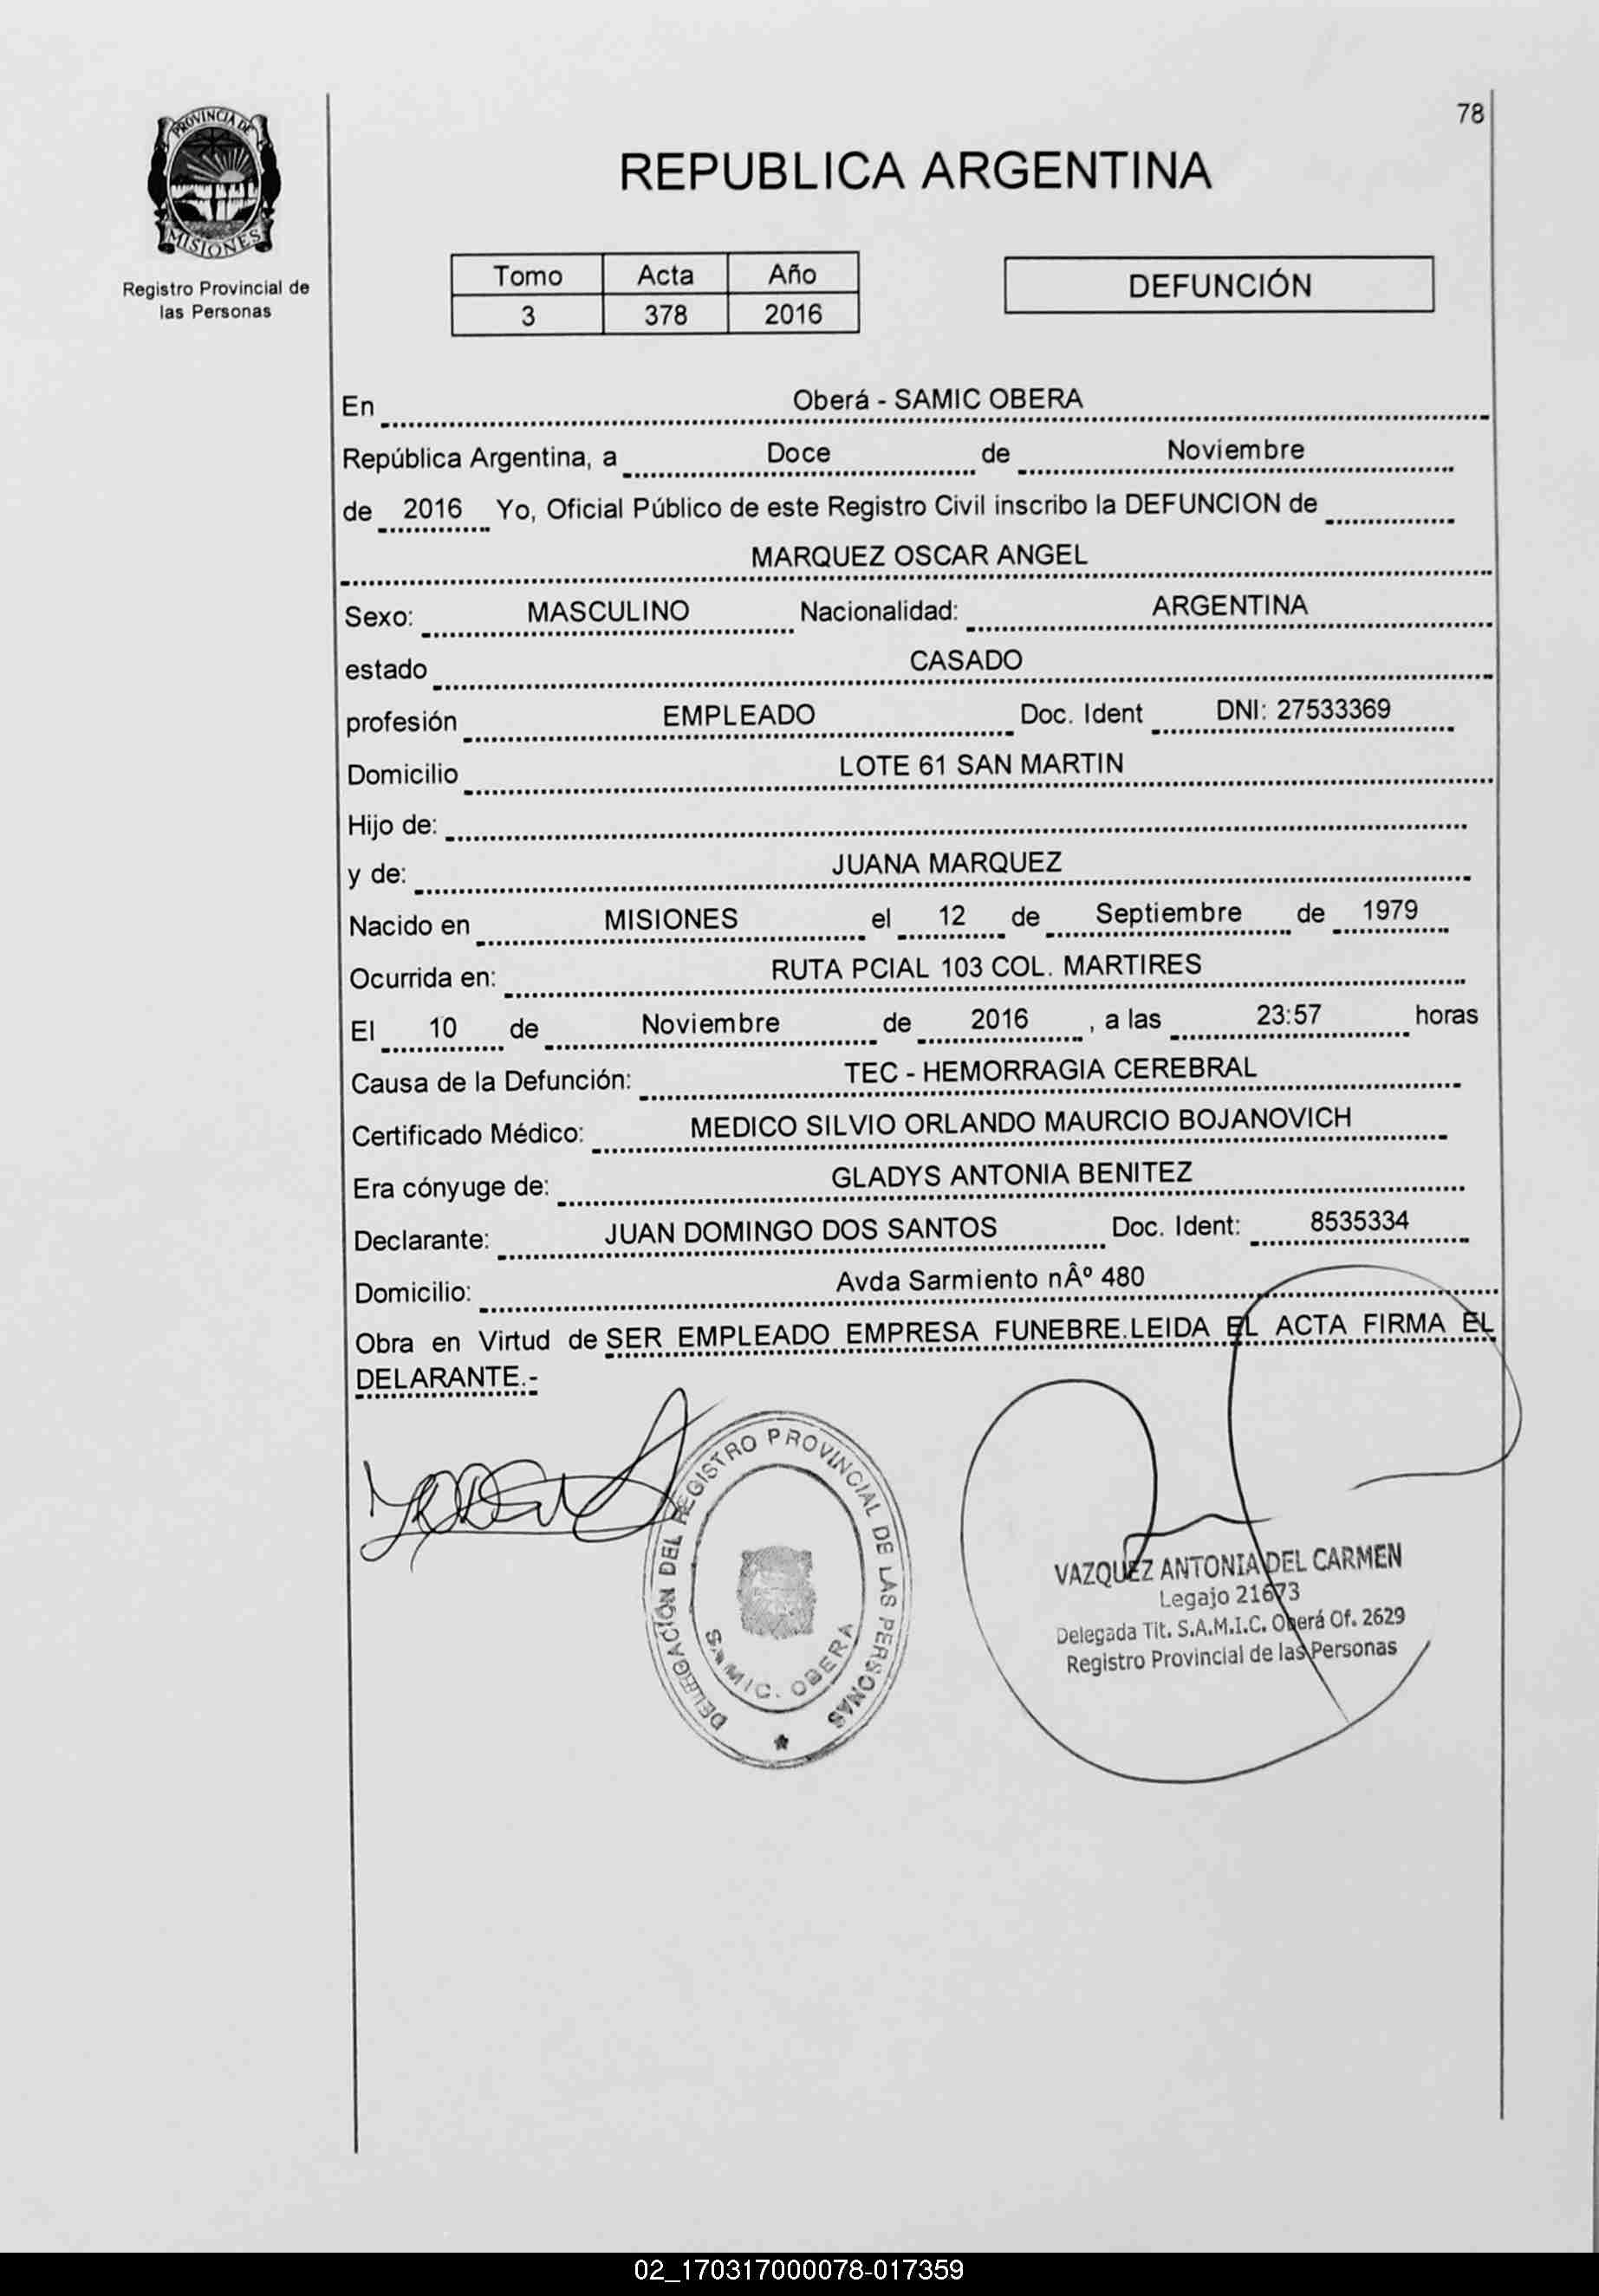 78
PROVINCIA DE
MISIONES
Registro Provincial de
las Personas
REPUBLICA ARGENTINA
Tomo Acta Año
3 378 2016
DEFUNCIÓN
En Oberá - SAMIC OBERA
República Argentina, a Doce de Noviembre
de 2016 Yo, Oficial Público de este Registro Civil inscribo la DEFUNCION de
MARQUEZ OSCAR ANGEL
Sexo: MASCULINO Nacionalidad: ARGENTINA
estado CASADO
profesión EMPLEADO Doc. Ident DNI: 27533369
Domicilio LOTE 61 SAN MARTIN
Hijo de:
y de: JUANA MARQUEZ
Nacido en MISIONES el 12 de Septiembre de 1979
Ocurrida en: RUTA PCIAL 103 COL. MARTIRES
El 10 de Noviembre de 2016 , a las 23:57 horas
Causa de la Defunción: TEC - HEMORRAGIA CEREBRAL
Certificado Médico: MEDICO SILVIO ORLANDO MAURCIO BOJANOVICH
Era cónyuge de: GLADYS ANTONIA BENITEZ
Declarante: JUAN DOMINGO DOS SANTOS Doc. Ident: 8535334
Domicilio: Avda Sarmiento nÂº 480
Obra en Virtud de SER EMPLEADO EMPRESA FUNEBRE.LEIDA EL ACTA FIRMA EL
DELARANTE.-
DELEGACIÓN DEL REGISTRO PROVINCIAL DE LAS PERSONAS
S.A.M.I.C. OBERA
VAZQUEZ ANTONIA DEL CARMEN
Legajo 21673
Delegada Tit. S.A.M.I.C. Oberá Of. 2629
Registro Provincial de las Personas
02_170317000078-017359